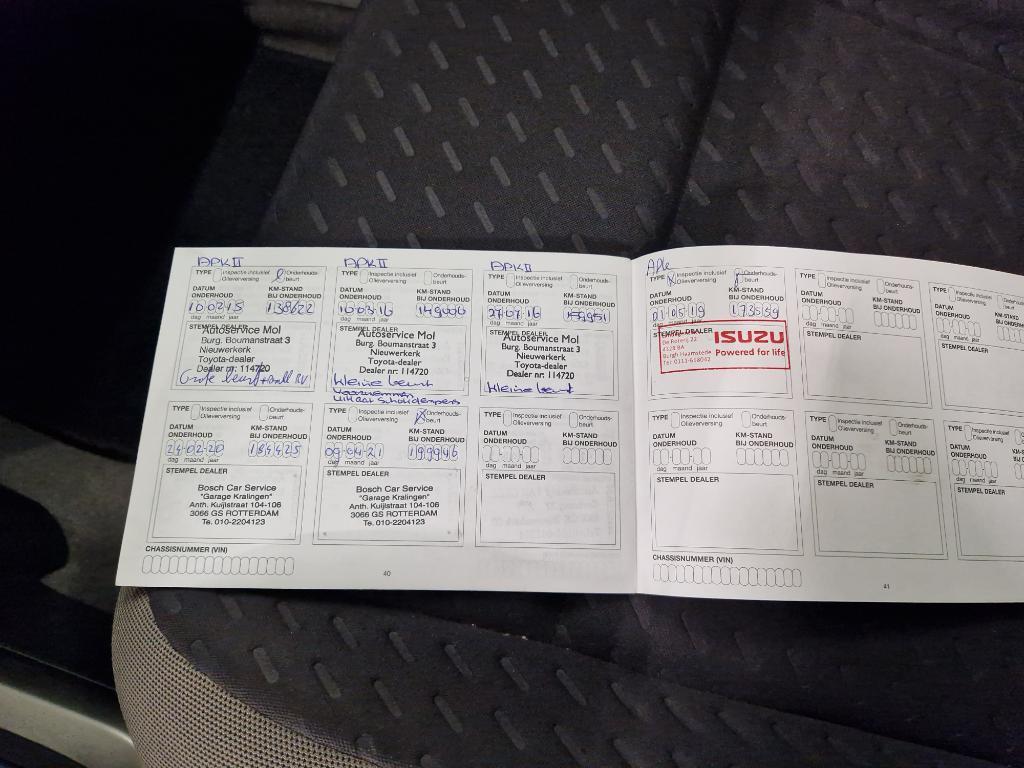 APK II
TYPE Inspectie inclusief Olieverversing Onderhouds-beurt
DATUM ONDERHOUD KM-STAND BIJ ONDERHOUD
10 02 15 138622
dag maand jaar
STEMPEL DEALER
Autoservice Mol
Burg. Boumanstraat 3
Nieuwerkerk
Toyota-dealer
Dealer nr: 114720
Grote beurt
APK II
TYPE Inspectie inclusief Olieverversing Onderhouds-beurt
DATUM ONDERHOUD KM-STAND BIJ ONDERHOUD
10 03 16 149000
dag maand jaar
STEMPEL DEALER
Autoservice Mol
Burg. Boumanstraat 3
Nieuwerkerk
Toyota-dealer
Dealer nr: 114720
kleine beurt
APK II
TYPE Inspectie inclusief Olieverversing Onderhouds-beurt
DATUM ONDERHOUD KM-STAND BIJ ONDERHOUD
27 07 16
dag maand jaar
STEMPEL DEALER
Autoservice Mol
Burg. Boumanstraat 3
Nieuwerkerk
Toyota-dealer
Dealer nr: 114720
kleine beurt
TYPE Inspectie inclusief Olieverversing Onderhouds-beurt
DATUM ONDERHOUD KM-STAND BIJ ONDERHOUD
24 02 20 184425
dag maand jaar
STEMPEL DEALER
Bosch Car Service
"Garage Kralingen"
Anth. Kuijlstraat 104-106
3066 GS ROTTERDAM
Te. 010-2204123
TYPE Inspectie inclusief Olieverversing Onderhouds-beurt
DATUM ONDERHOUD KM-STAND BIJ ONDERHOUD
09 04 21 199946
dag maand jaar
STEMPEL DEALER
Bosch Car Service
"Garage Kralingen"
Anth. Kuijlstraat 104-106
3066 GS ROTTERDAM
Te. 010-2204123
TYPE Inspectie inclusief Olieverversing Onderhouds-beurt
DATUM ONDERHOUD KM-STAND BIJ ONDERHOUD
dag maand jaar
STEMPEL DEALER
CHASSISNUMMER (VIN)
40
APK
TYPE Inspectie inclusief Olieverversing Onderhouds-beurt
DATUM ONDERHOUD KM-STAND BIJ ONDERHOUD
01 05 19 173559
dag maand jaar
STEMPEL DEALER
De Roterij 22
4328 BA
Burgh Haamstede
Tel: 0111-618042
ISUZU
Powered for life
TYPE Inspectie inclusief Olieverversing Onderhouds-beurt
DATUM ONDERHOUD KM-STAND BIJ ONDERHOUD
dag maand jaar
STEMPEL DEALER
TYPE Inspectie inclusief Olieverversing
DATUM ONDERHOUD
dag maand jaar
STEMPEL DEALER
TYPE Inspectie inclusief Olieverversing Onderhouds-beurt
DATUM ONDERHOUD KM-STAND BIJ ONDERHOUD
dag maand jaar
STEMPEL DEALER
TYPE Inspectie inclusief Olieverversing Onderhouds-beurt
DATUM ONDERHOUD KM-STAND BIJ ONDERHOUD
dag maand jaar
STEMPEL DEALER
TYPE Inspectie inclusief Olieverversing
DATUM ONDERHOUD
dag maand jaar
STEMPEL DEALER
CHASSISNUMMER (VIN)
41